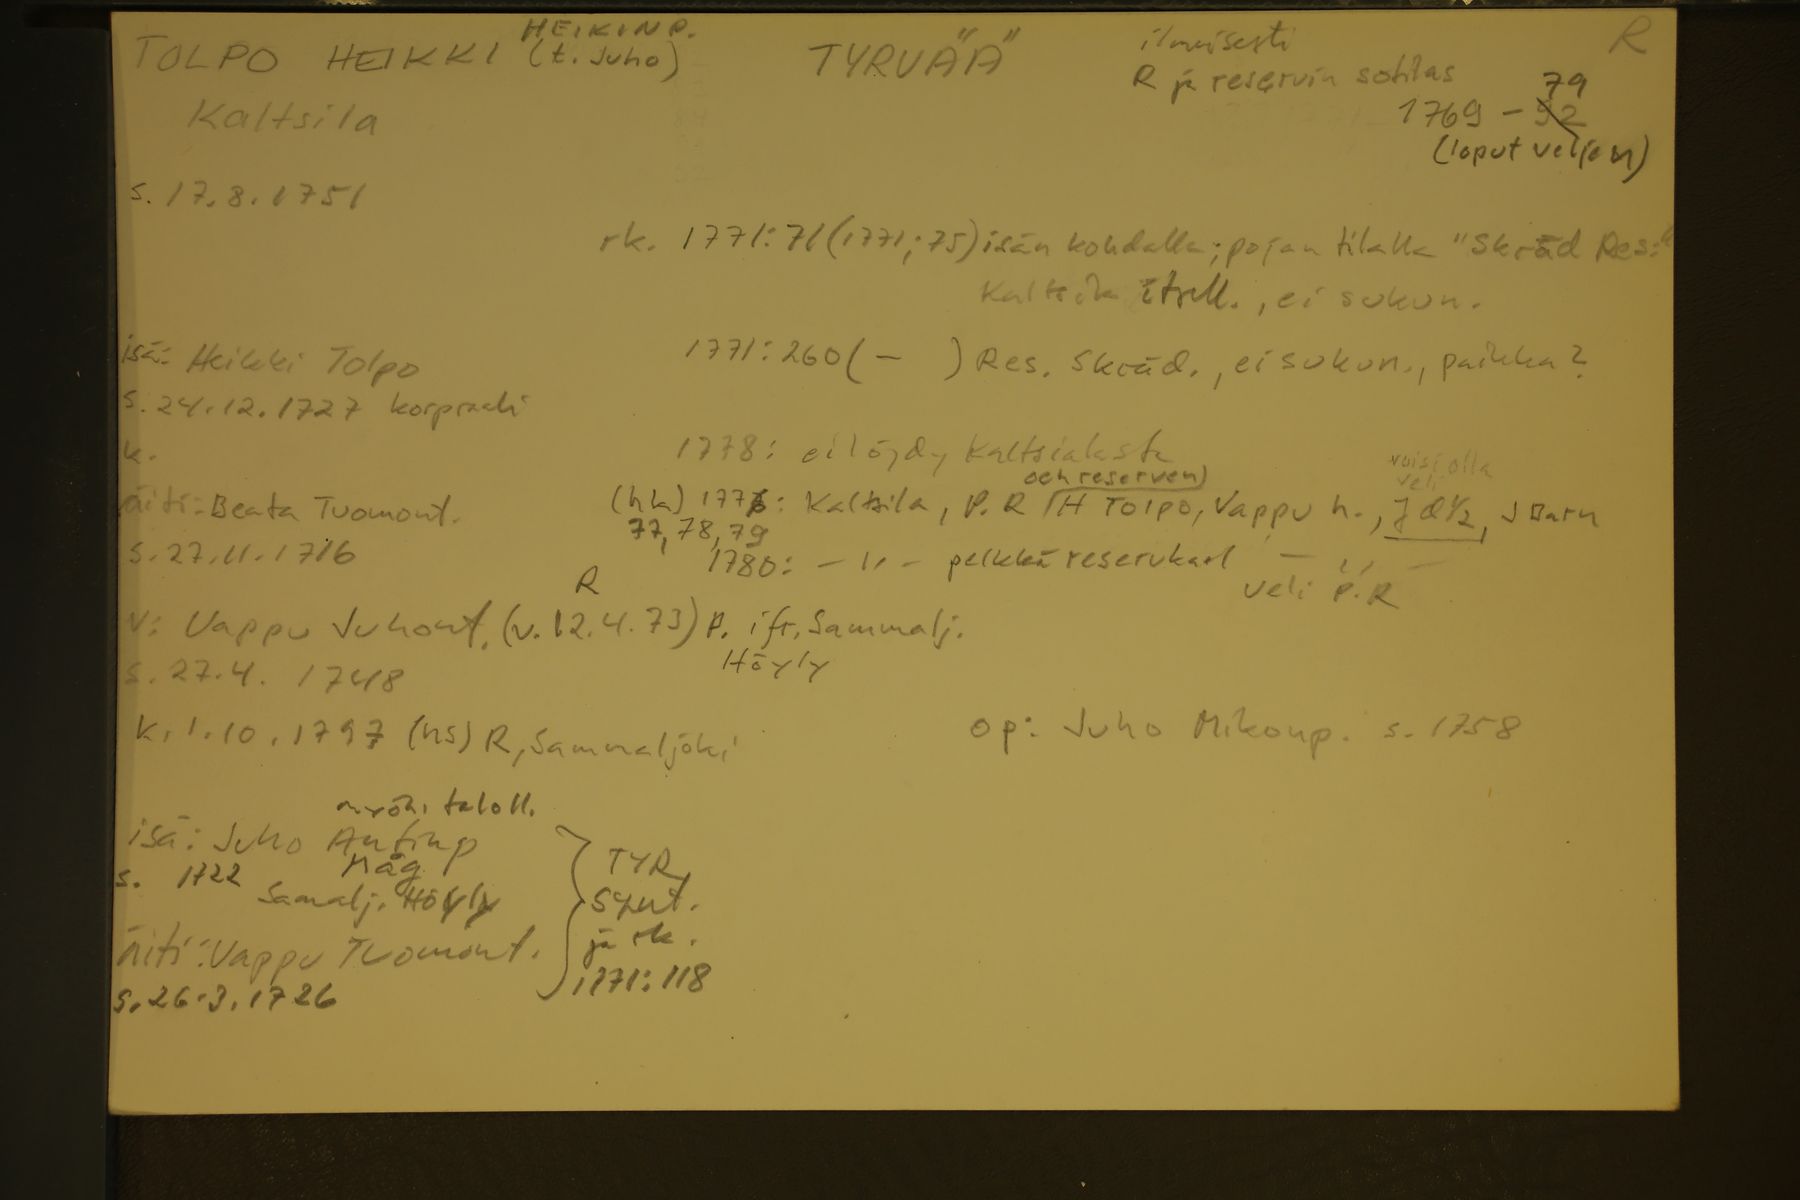 HEIKINP.
TOLPO HEIKKI (t. Juho) TYRVÄÄ ilmeisesti R
R ja reservin sotilas
Kaltsila 1769 - 92 79
(loput veljen)
s. 17.8.1751
rk. 1771:71 (1771;75) isän kohdalla; pojan tilalla "Skräd Res:"
Kaltsila itsell., ei sukun.
isä: Heikki Tolpo 1771:260 ( - ) Res. Skräd., ei sukun., paikka?
s. 24.12.1727 korpraali
k. 1778: ei löydy Kaltsialasta
och reserven) voisi olla veli
äiti: Beata Tuomont. (hk) 1776: Kaltsila, P.R H Tolpo, Vappu h., J d 1/2, J Barn
77, 78, 79
s. 27.11.1716 1780: - ,, - pelkkä reservkarl - ,, -
R veli P.R
v: Vappu Juhont. (v. 12.4.73) p. ifr. Sammalj.
Höyly
s. 27.4. 1748
k. 1.10.1797 (hs) R, Sammaljoki op: Juho Mikonp. s. 1758
myöh. taloll.
isä: Juho Antinp TYR
Måg
s. 1722 Samalj. Höyly synt.
ja rk.
äiti: Vappu Tuomont. 1771:118
s. 26.3.1726